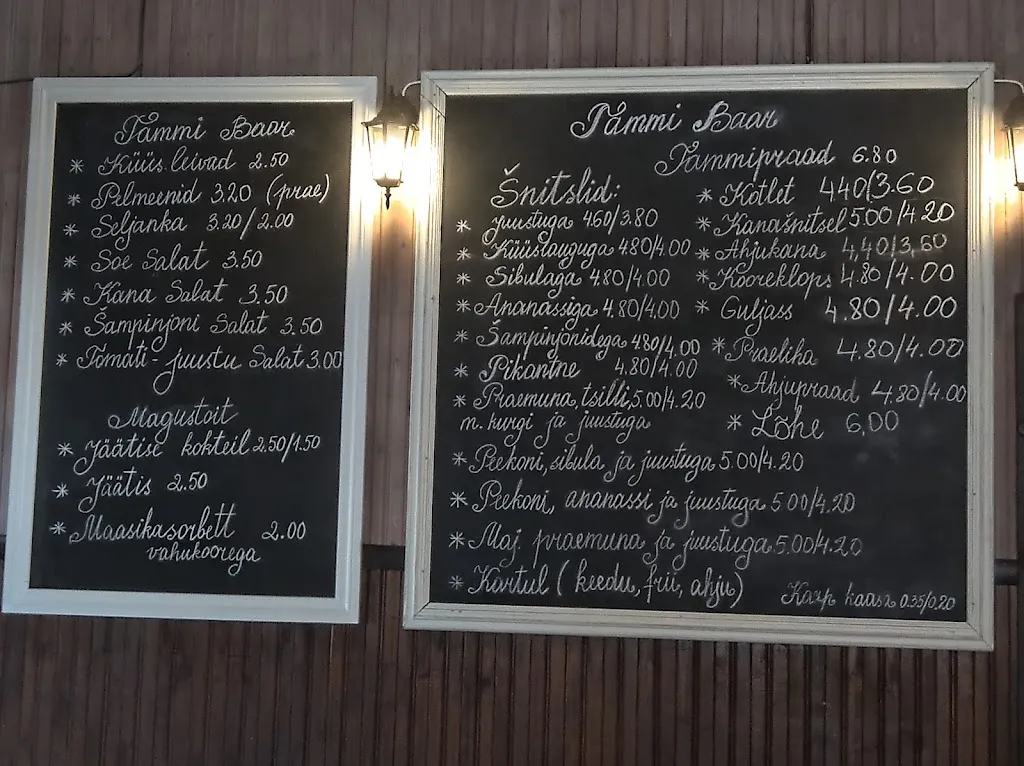 Tammi Baar
* Küüs.leivad 2.50
* Pelmeenid 3.20 (prae)
* Seljanka 3.20/2.00
* Soe Salat 3.50
* Kana Salat 3.50
* Šampinjoni Salat 3.50
* Tomati-juustu Salat 3.00
Magustoit
* Jäätise kokteil 2.50/1.50
* Jäätis 2.50
* Maasikasorbett 2.00
vahukoorega
Tammi Baar
Tammipraad 6.80
Šnitslid:
* juustuga 4.60/3.80
* Küüslauguga 4.80/4.00
* Sibulaga 4.80/4.00
* Ananassiga 4.80/4.00
* Šampinjonidega 4.80/4.00
* Pikantne 4.80/4.00
* Praemuna, tsilli, 5.00/4.20
m. kurgi ja juustuga
* Peekoni, sibula ja juustuga 5.00/4.20
* Peekoni, ananassi ja juustuga 5.00/4.20
* Maj. praemuna ja juustuga 5.00/4.20
* Kartul (keedu, frii, ahju)
* Kotlet 4.40/3.60
* Kanašnitsel 5.00/4.20
* Ahjukana 4,40/3,60
* Kooreklops 4.80/4.00
* Guljass 4.80/4.00
* Praeliha 4.80/4.00
* Ahjupraad 4.80/4.00
* Lõhe 6,00
Karp kaasa 0.35/0.20